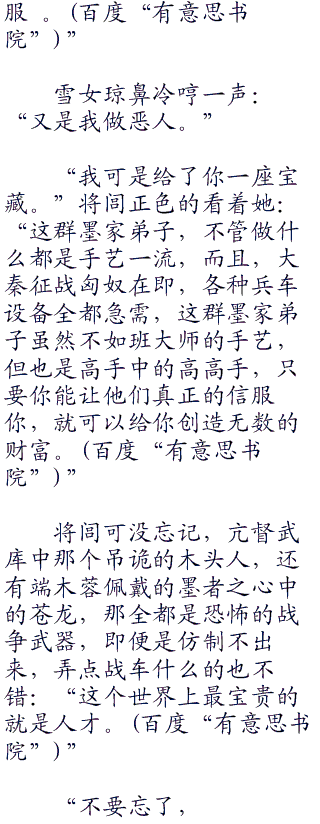 服 。(百度“有意思书
院”)”
雪女琼鼻冷哼一声：
“又是我做恶人。”
“我可是给了你一座宝
藏。”将闾正色的看着她：
“这群墨家弟子，不管做什
么都是手艺一流，而且，大
秦征战匈奴在即，各种兵车
设备全都急需，这群墨家弟
子虽然不如班大师的手艺，
但也是高手中的高高手，只
要你能让他们真正的信服
你，就可以给你创造无数的
财富。(百度“有意思书
院”)”
将闾可没忘记，亢督武
库中那个吊诡的木头人，还
有端木蓉佩戴的墨者之心中
的苍龙，那全都是恐怖的战
争武器，即便是仿制不出
来，弄点战车什么的也不
错：“这个世界上最宝贵的
就是人才。(百度“有意思书
院”)”
“不要忘了，